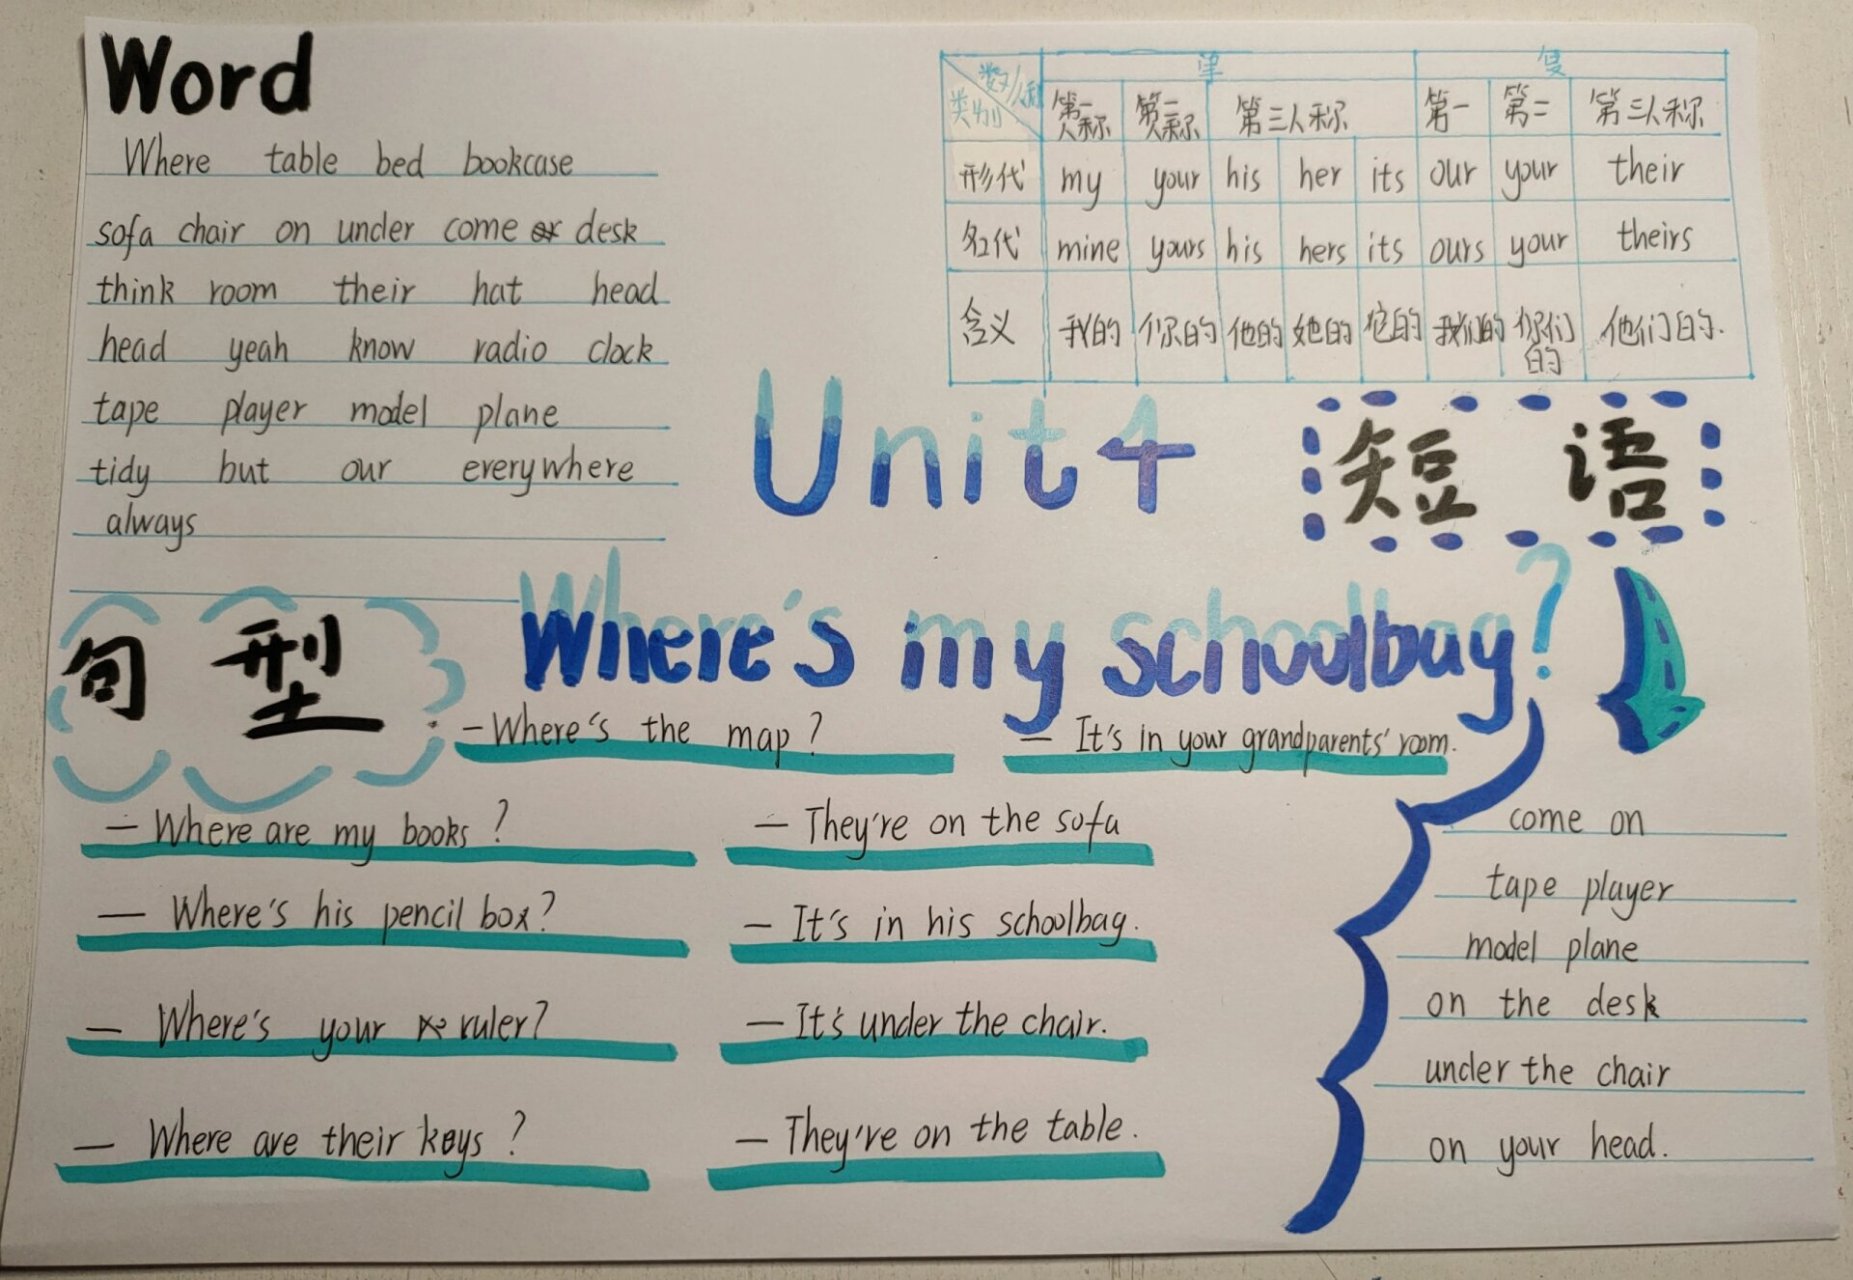 Word
Where table bed bookcase
sofa chair on under come desk
think room their hat head
head yeah know radio clock
tape player model plane
tidy but our everywhere
always
数/人称 单 复
类别 第一人称 第二人称 第三人称 第一 第二 第三人称
形代 my your his her its our your their
名代 mine yours his hers its ours your theirs
含义 我的 你的 他的 她的 它的 我们的 你们的 他们的.
Unit4
Where's my schoolbag?
句型
—Where's the map?
— It's in your grandparents' room.
— Where are my books?
— They're on the sofa
— Where's his pencil box?
— It's in his schoolbag.
— Where's your ruler?
— It's under the chair.
— Where are their keys?
— They're on the table.
短语
come on
tape player
model plane
on the desk
under the chair
on your head.